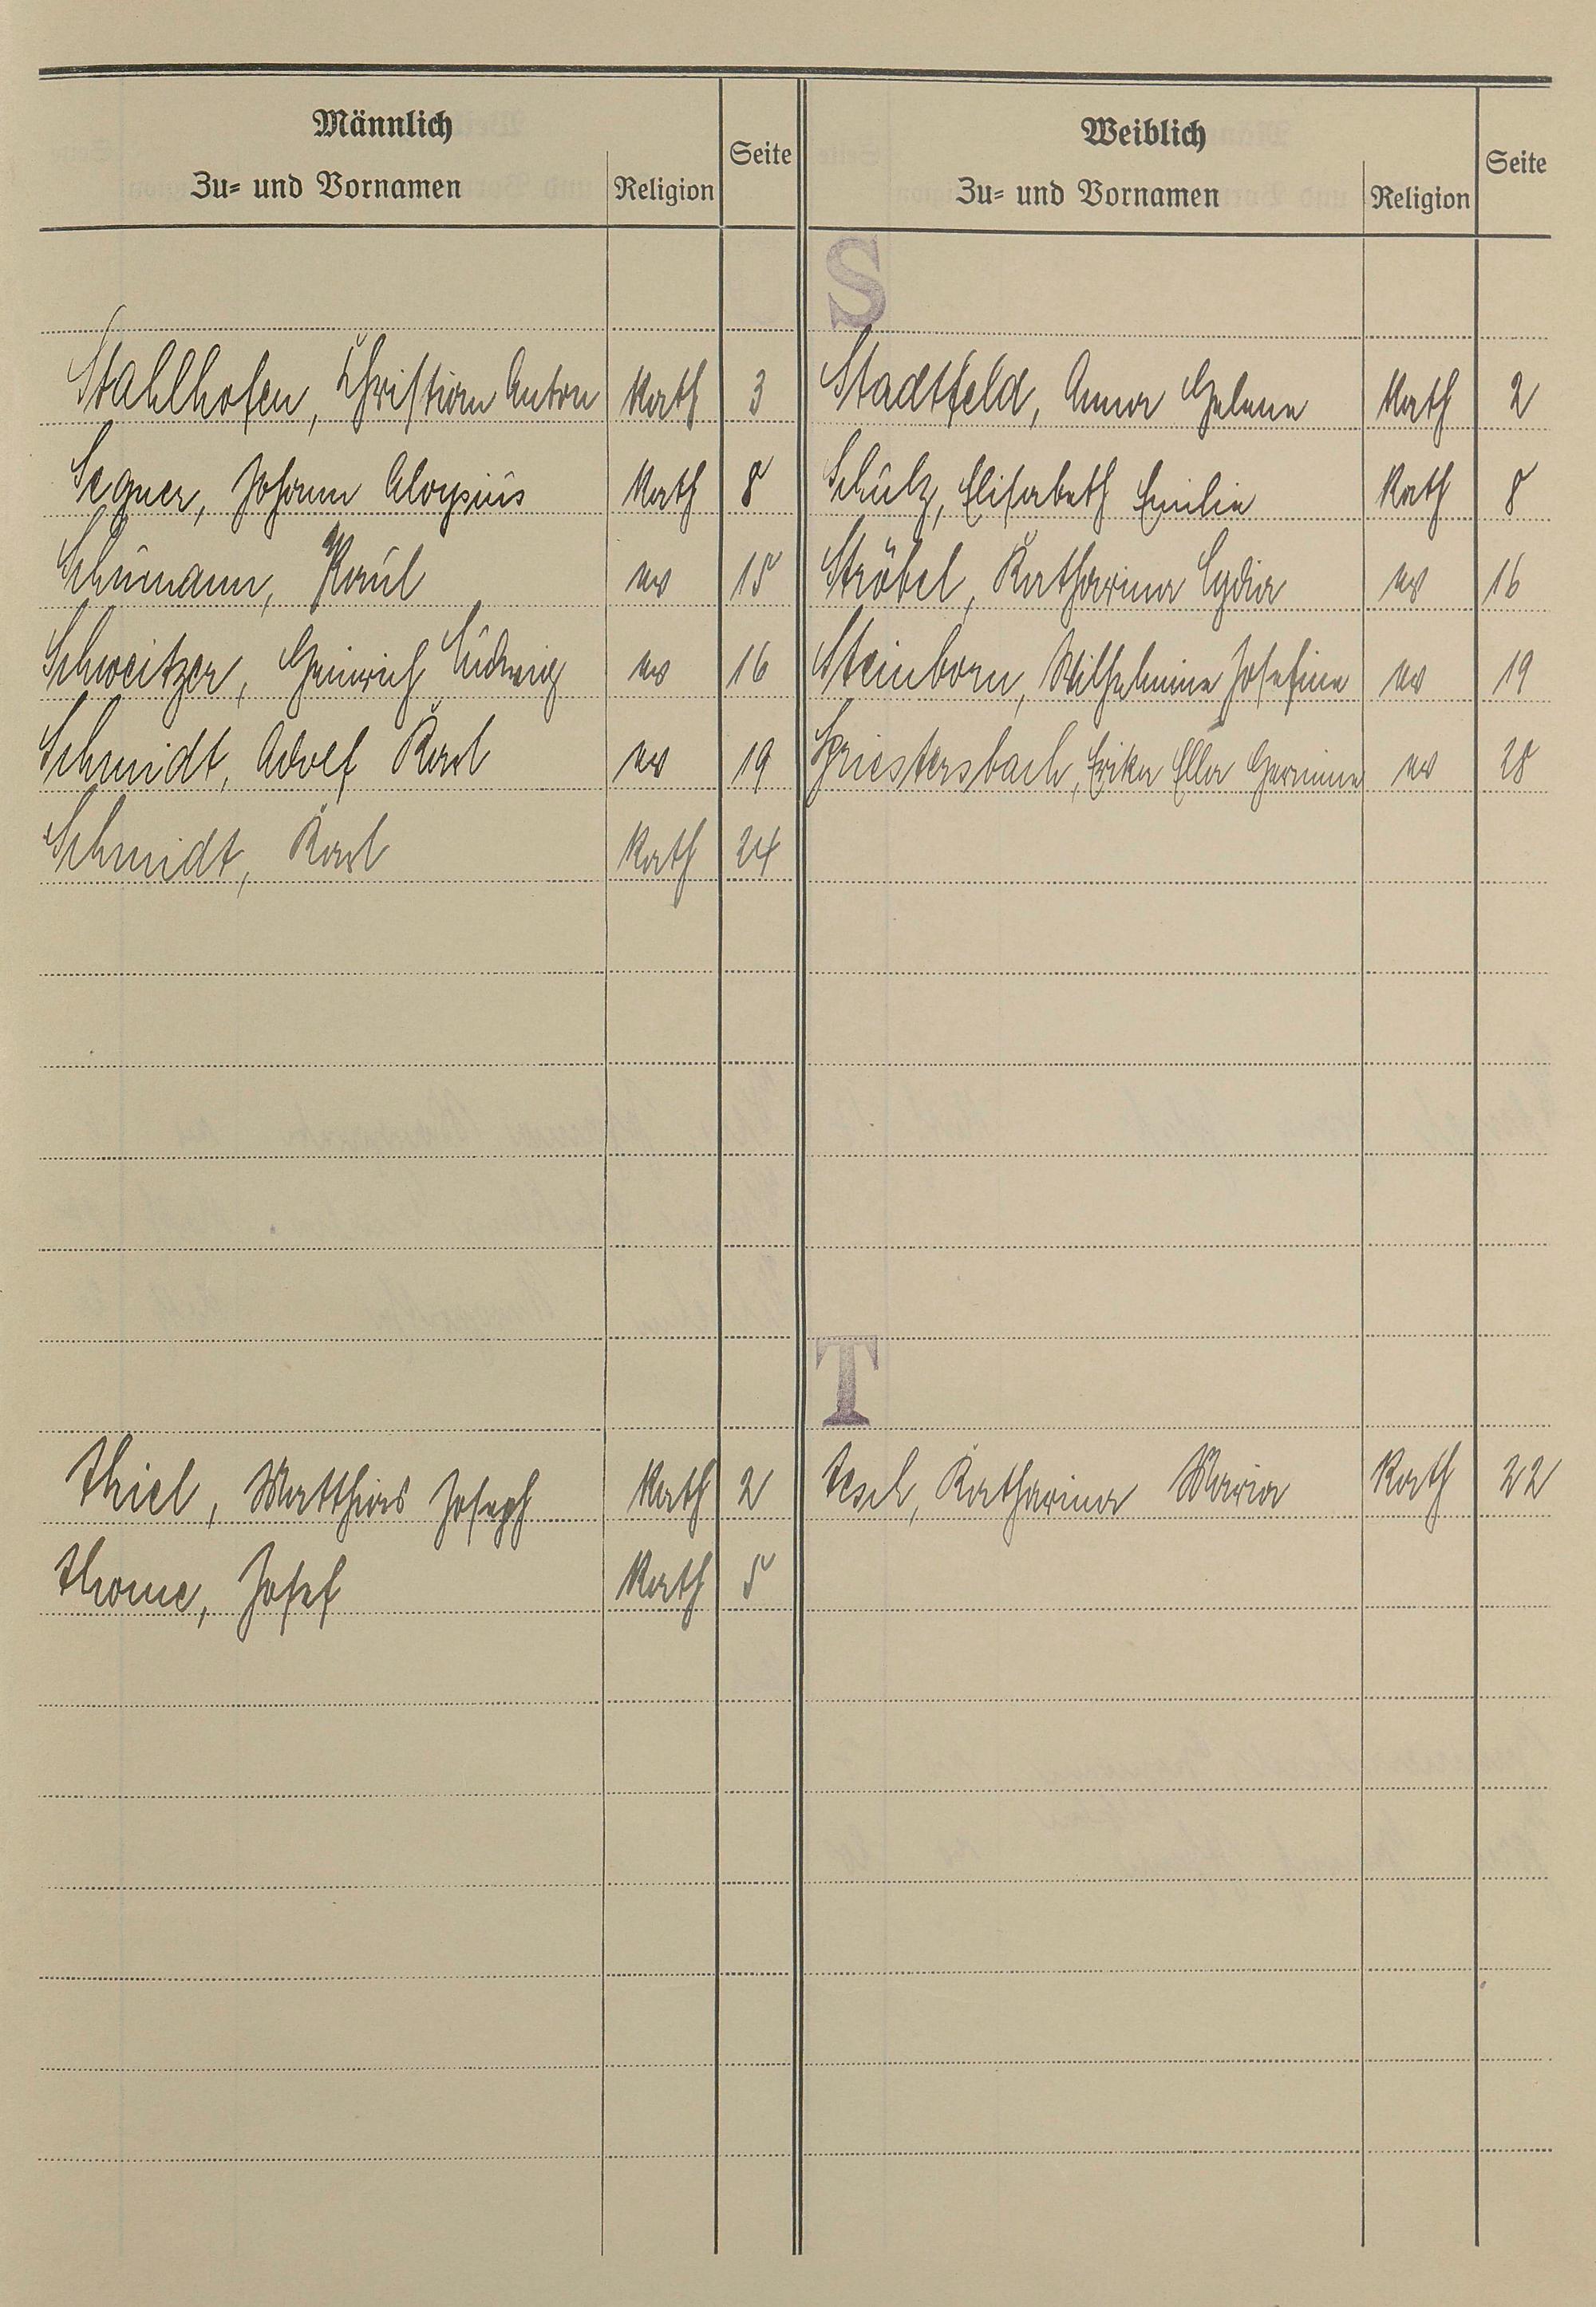 Männlich
Zu- und Vornamen
Religion
Seite
Weiblich
Zu- und Vornamen
Religion
Seite
S
Stahlhofen, Christian Anton Kath 3 Stadtfeld, Anna Helene Kath 2
Segner, Johann Aloysius Kath 8 Schulz, Elisabeth Emilie Kath 8
Schumann, Karl ev 15 Ströbel, Katharina Lydia ev 16
Schweitzer, Heinrich Ludwig ev 16 Steinborn, Wilhelmine Josefine ev 19
Schmidt, Adolf Karl ev 19 Spriestersbach, Erika Ella Hermine ev 28
Schmidt, Karl Kath 24
T
Thiel, Matthias Joseph Kath 2 Tesch, Katharina Maria Kath 22
Thome, Josef Kath 5